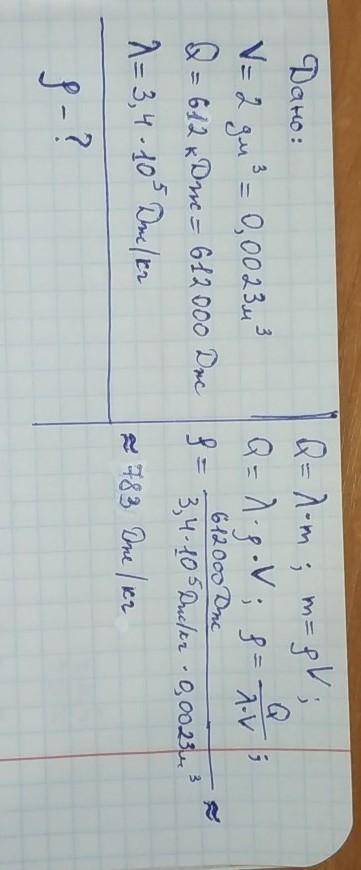 Дано:
V = 2 дм³ = 0,0023м³
Q = 612 кДж = 612000 Дж
λ = 3,4 · 10⁵ Дж/кг
ρ - ?
Q = λ·m ; m = ρV ;
Q = λ·ρ·V ; ρ = Q/λ·V ;
ρ = 612000Дж/3,4·10⁵Дж/кг · 0,0023м³ ≈
≈ 783 Дж/кг